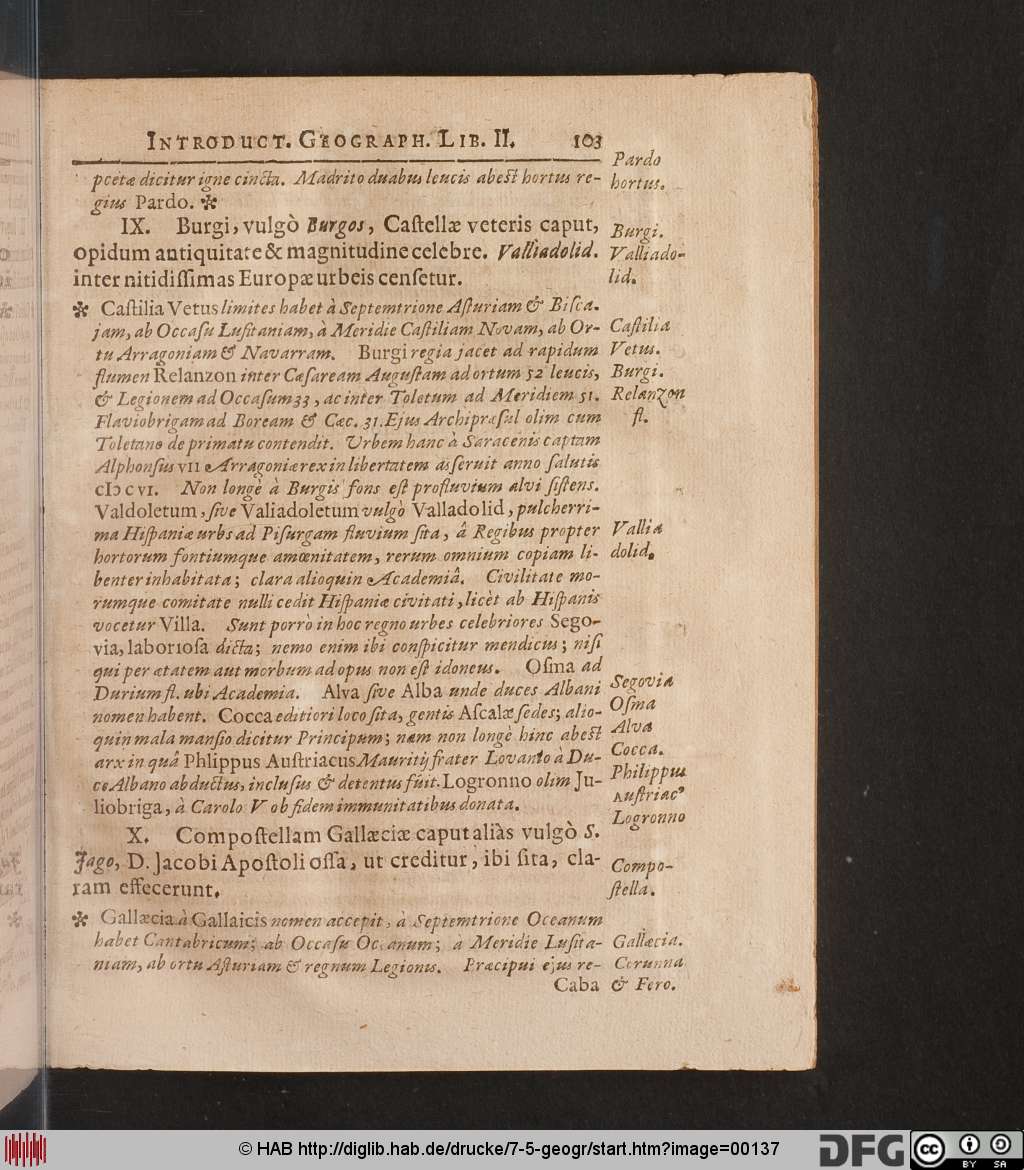 INTRODUCT. GEOGRAPH. LIB. II. 103
pcetæ dicitur igne cincta. Madrito duabus leucis abest hortus re-
gius Pardo. *
Pardo
hortus.
IX. Burgi, vulgò Burgos, Caſtellæ veteris caput,
opidum antiquitate & magnitudine celebre. Valliadolid.
inter nitidiſſimas Europæ urbeis cenſetur.
Burgi.
Valliado-
lid.
* Caſtilia Vetus limites habet à Septemtrione Aſturiam & Biſca.
jam, ab Occaſu Luſitaniam, à Meridie Caſtiliam Novam, ab Or-
tu Arragoniam & Navarram. Burgi regia jacet ad rapidum
flumen Relanzon inter Cæſaream Auguſtam ad ortum 52 leucis,
& Legionem ad Occaſum 33, ac inter Toletum ad Meridiem 51.
Flaviobrigam ad Boream & Cæc. 31. Ejus Archipræſul olim cum
Toletano de primatu contendit. Urbem hanc à Saracenis captam
Alphonſus VII Arragoniæ rex in libertatem asſeruit anno ſalutis
cIↄ c VI. Non longè à Burgis fons eſt profluvium alvi ſiſtens.
Valdoletum, ſive Valiadoletum vulgò Valladolid, pulcherri-
ma Hiſpaniæ urbs ad Piſurgam fluvium ſita, â Regibus propter
hortorum fontiumque amœnitatem, rerum omnium copiam li-
benter inhabitata; clara alioquin Academiâ. Civilitate mo-
rumque comitate nulli cedit Hiſpaniæ civitati, licèt ab Hiſpanis
vocetur Villa. Sunt porrò in hoc regno urbes celebriores Sego-
via, laborioſa dicta; nemo enim ibi conſpicitur mendicus; niſi
qui per ætatem aut morbum ad opus non eſt idoneus. Oſma ad
Durium fl. ubi Academia. Alva ſive Alba unde duces Albani
nomen habent. Cocca editiori loco ſita, gentis Aſcalæ ſedes; alio-
quin mala manſio dicitur Principum; nam non longè hinc abest
arx in quâ Phlippus Auſtriacus Mauritij frater Lovanio à Du-
ce Albano abductus, incluſus & detentus fuit. Logronno olim Ju-
liobriga, à Carolo V ob fidem immunitatibus donata.
Caſtilia
Vetus.
Burgi.
Relanzon
fl.
Vallia
dolid.
Segovia
Oſma
Alva
Cocca.
Philippus
Auſtriacꝰ
Logronno
X. Compoſtellam Gallæciæ caput aliàs vulgò S.
Jago, D. Jacobi Apoſtoli oſſa, ut creditur, ibi ſita, cla-
ram effecerunt.
Compo-
ſtella.
* Gallæcia à Gallaicis nomen accepit, à Septemtrione Oceanum
habet Cantabricum; ab Occaſu Oceanum; a Meridie Luſita-
niam, ab ortu Aſturiam & regnum Legionis. Præcipui ejus re-
Caba
Gallæcia.
Corunna
& Fero.
© HAB http://diglib.hab.de/drucke/7-5-geogr/start.htm?image=00137
DFG
cc
BY SA